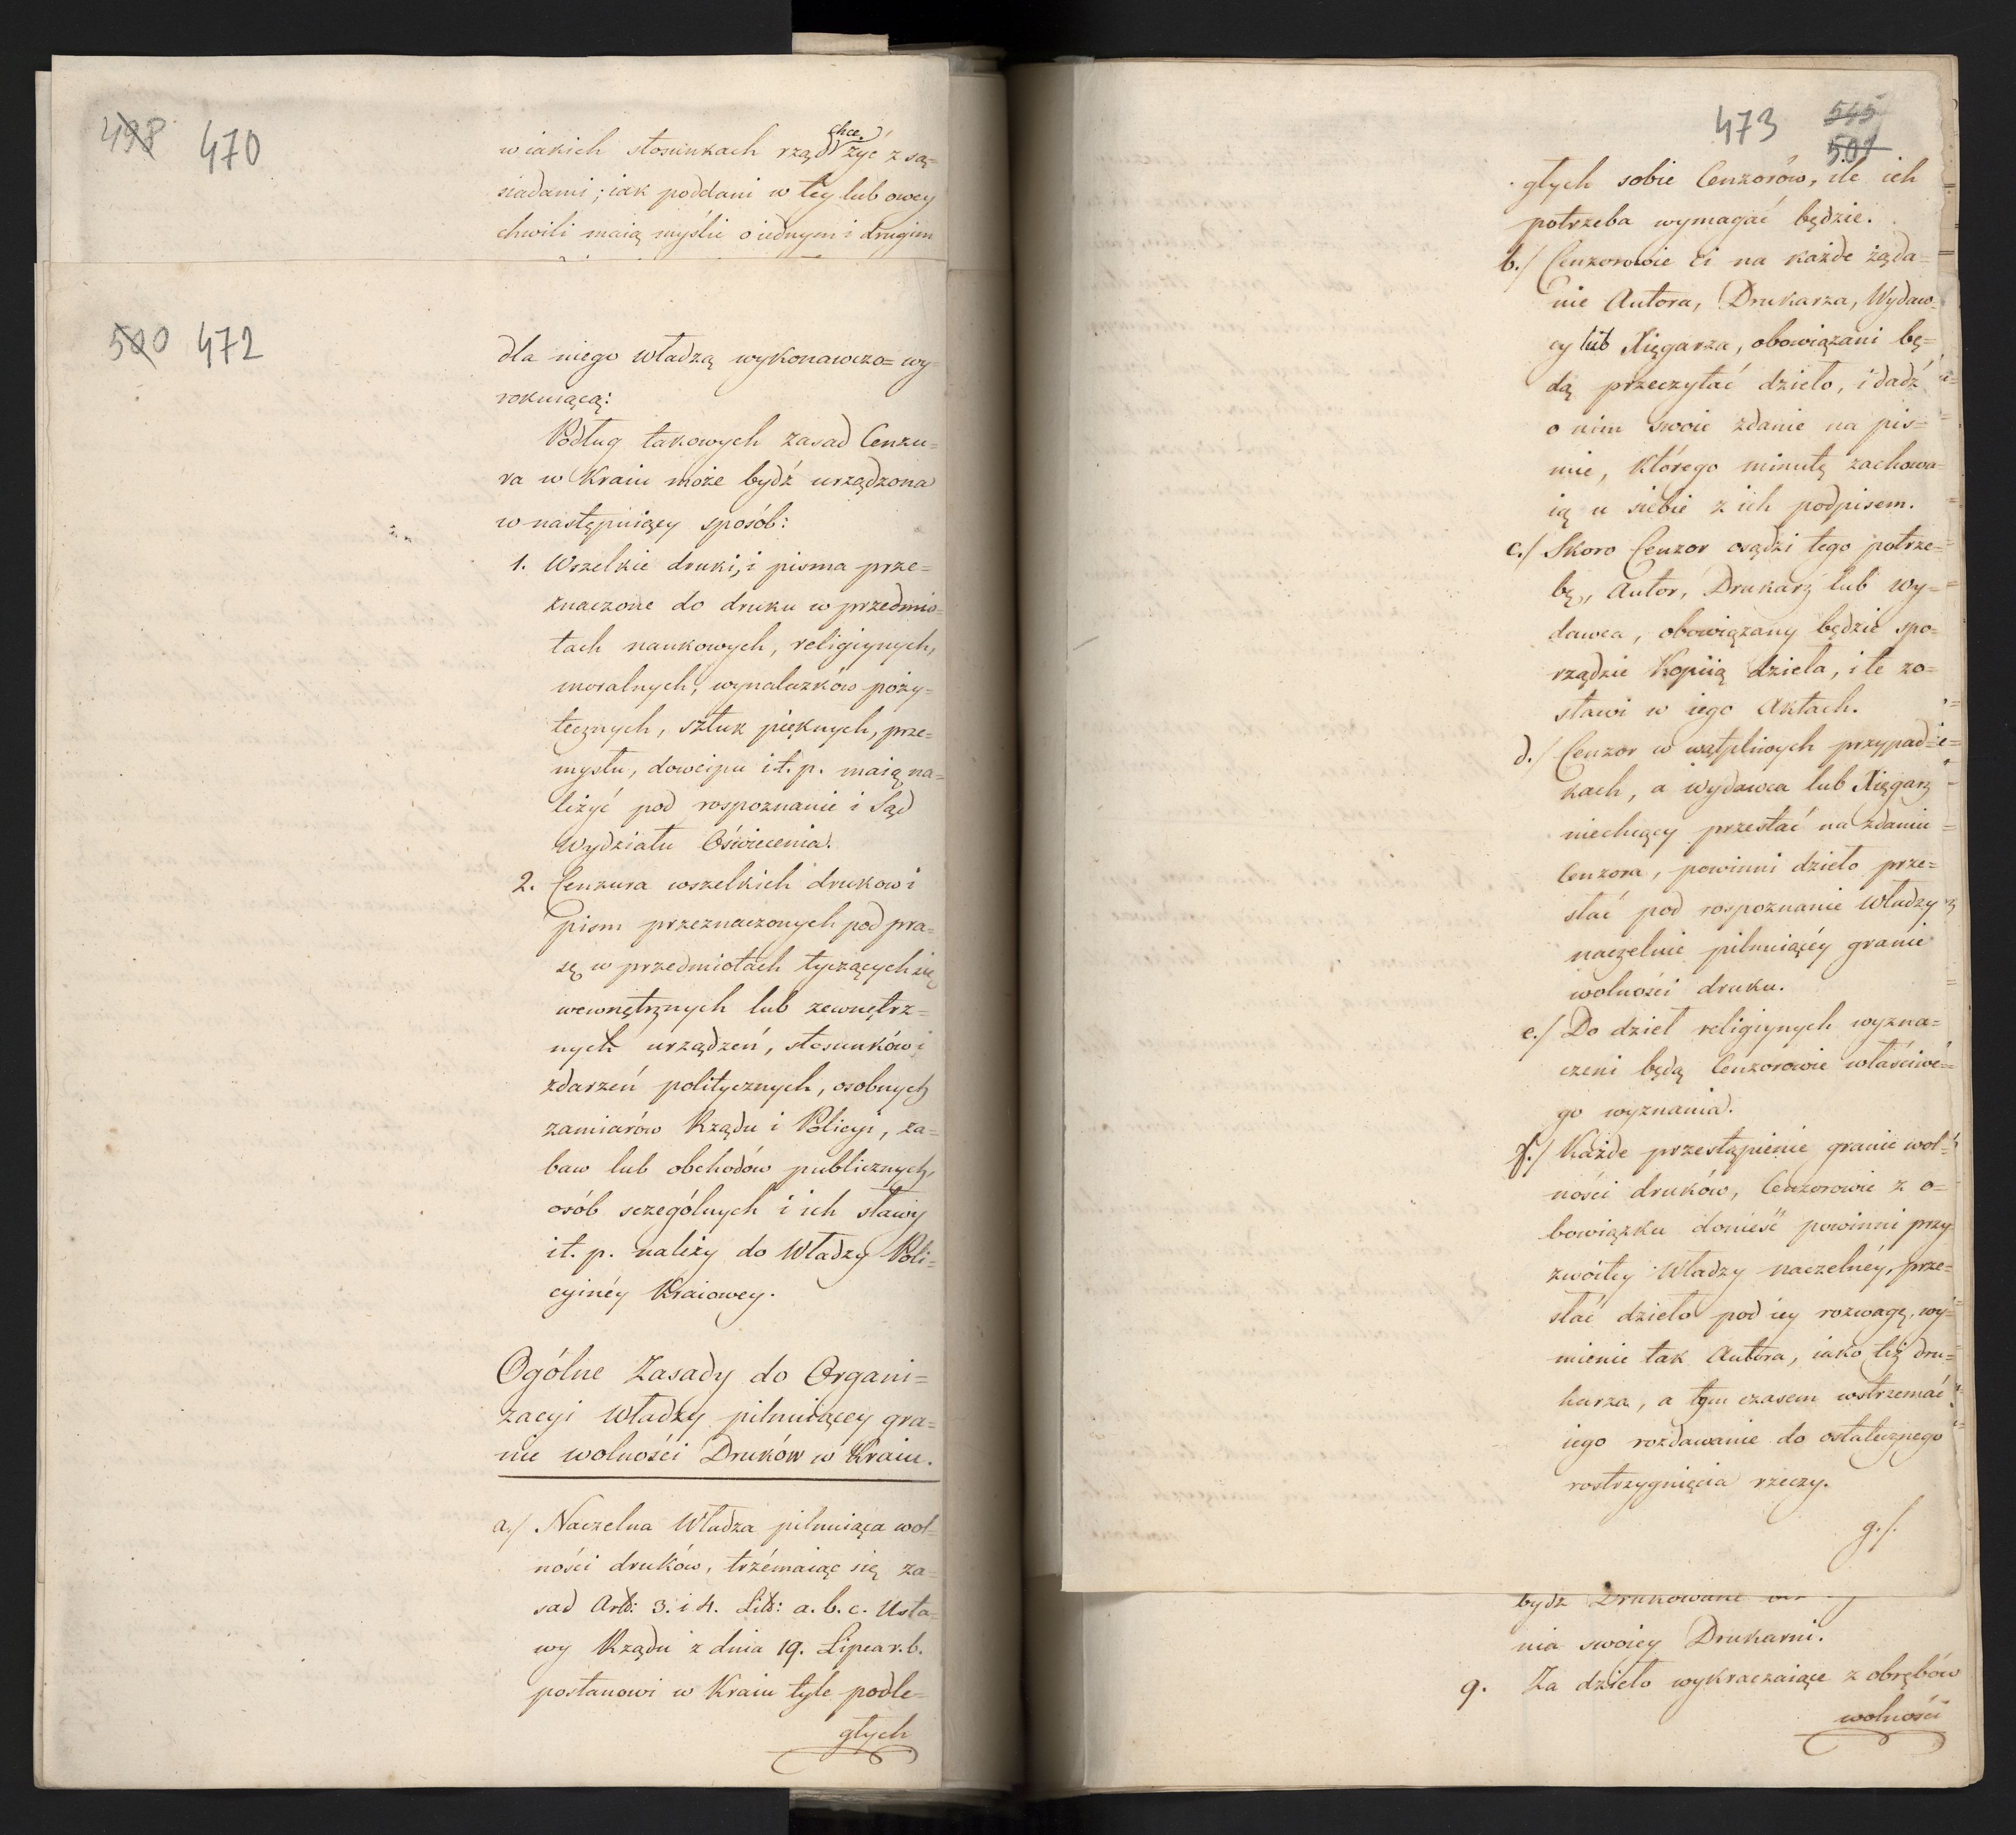 498 470
w iakich stosunkach rząd chce żyć z są-
siadami; iak poddani w tey lub owey
chwili maią myślić o iednym i drugim
500 472
dla niego władzą wykonawczo=wy-
rokuiącą:
Podług takowych zasad Cenzu-
ra w Kraiu może bydź urządzona
w następuiący sposób:
1. Wszelkie druki, i pisma prze=
znaczone do druku w przedmio-
tach naukowych, religiynych,
moralnych, wynalazków poży-
tecznych, sztuk pięknych, prze=
mysłu, dowcipu i t. p. maią na-
liżyć pod rospoznanie i Sąd
Wydziału Oświecenia.
2. Cenzura wszelkich druków i
pism przeznaczonych pod pra-
sę w przedmiotach tyczących się
wewnętrznych lub zewnętrz=
nych urządzeń, stosunków i
zdarzeń politycznych, osobnych
zamiarów Rządu i Policyi, za=
baw lub obchodów publicznych,
osób sczególnych i ich sławy
i t. p. należy do Władzy Poli-
cyinéy Kraiowey.
Ogólne Zasady do Organi=
zacyi Władzy pilnuiącey gra-
nic wolności Druków w Kraiu.
a./ Naczelna Władza pilnuiąca wol-
ności druków, trzémaiąc się za=
sad Artt: 3. i 4. Litt: a. b. c. Usta-
wy Rządu z dnia 19. Lipca r. b.
postanowi w Kraiu tyle podle-
głych
473 545
501
głych sobie Cenzorów, ile ich
potrzeba wymagać będzie.
b./ Cenzorowie ci na każde żąda=
nie Autora, Drukarza, Wydaw-
cy lub Xięgarza, obowiązani bę=
dą przeczytać dzieło, i dadź
o nim swoie zdanie na piś=
mie, którego minutę zachowa-
ią u siebie z ich podpisem.
c./ Skoro Cenzor osądzi tego potrze-
bę, Autor, Drukarz lub Wy=
dawca, obowiązany będzie spo-
rządzić Kopiią dzieła, i tę zo-
stawi w iego Aktach.
d./ Cenzor w wątpliwych przypad-
kach, a Wydawca lub Xięgarz
niechcący przestać na zdaniu
Cenzora, powinni dzieło prze=
słać pod rospoznanie Władzy
naczelnie pilnuiącéy granic
wolności druku.
e./ Do dzieł religiynych wyzna=
czeni będą Cenzorowie właściwe=
go wyznania.
f./ Każde przestąpienie granic wol-
ności druków, Cenzorowie z o=
bowiązku donieść powinni przy-
zwoitey Władzy naczelnéy, prze=
słać dzieło pod iey rozwagę, wy-
mienić tak Autora, iako też dru=
karza, a tym czasem wstrzemać
iego rozdawanie do ostatecznego
rostrzygnięcia rzeczy.
g./.
bydź Drukowane
nia swoiey Drukarni.
9. Za dzieło wykraczaiące z obrębów
wolności